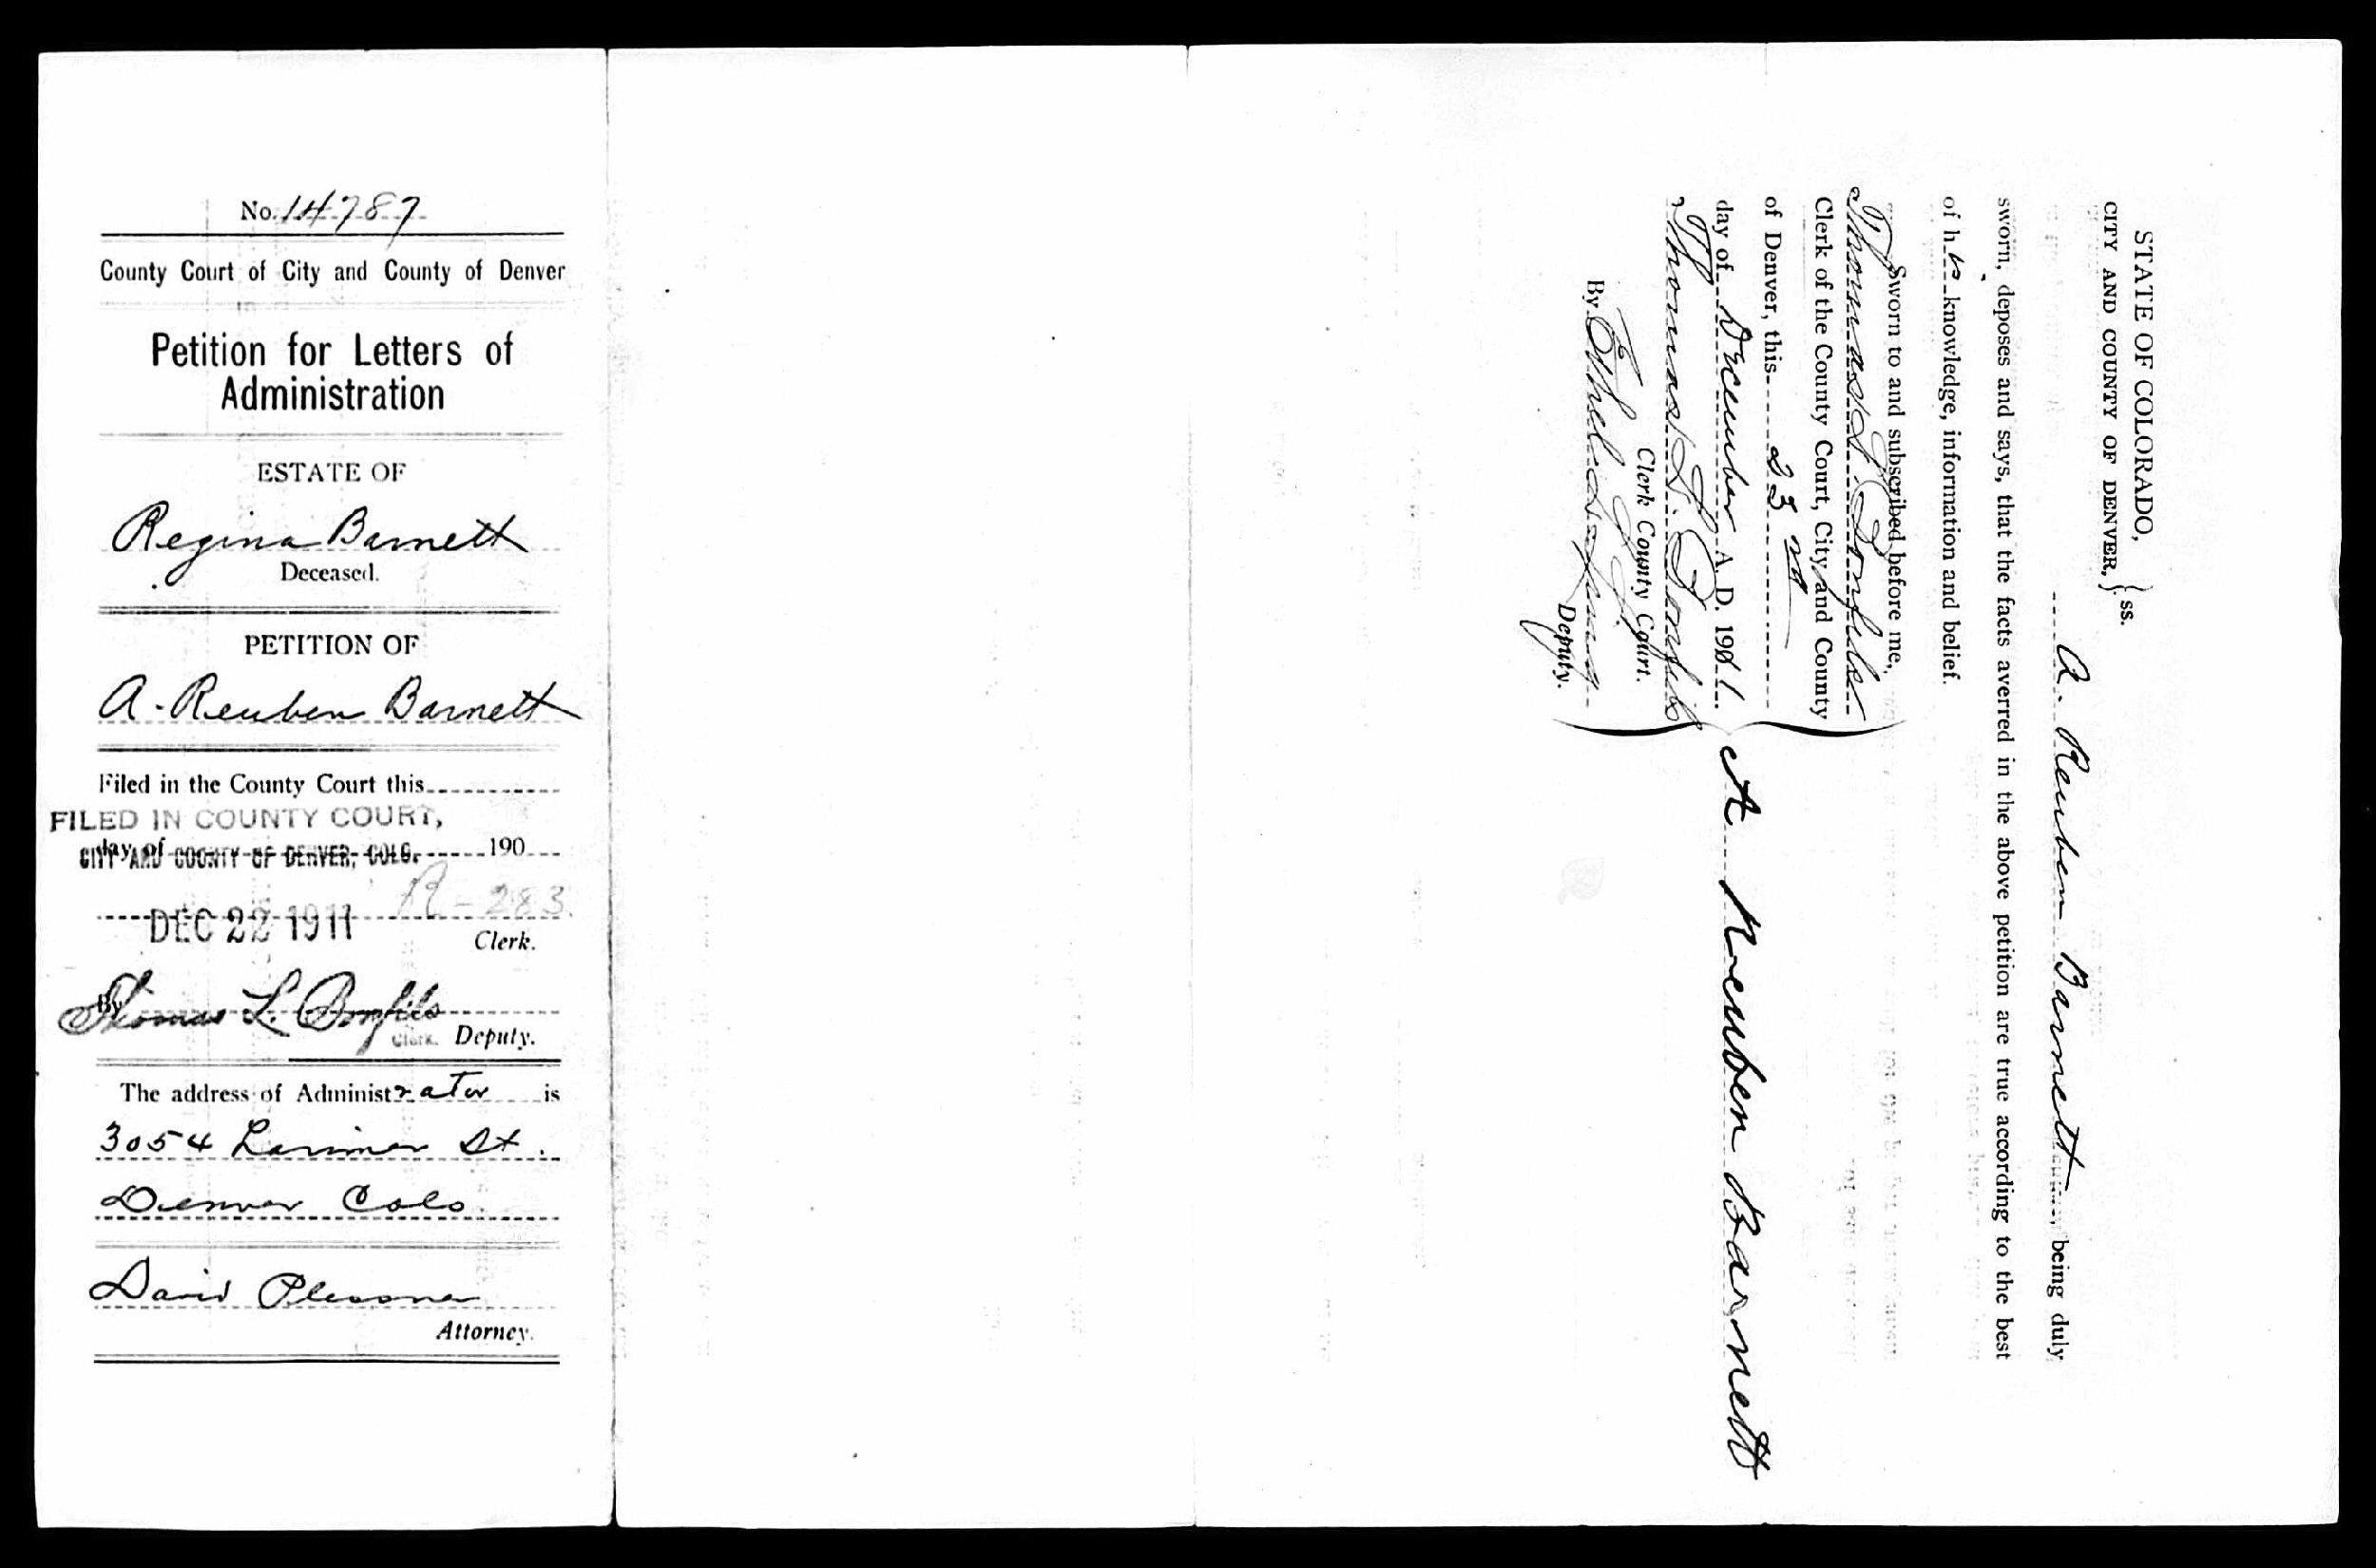 No. 14787
County Court of City and County of Denver
Petition for Letters of
Administration
ESTATE OF
Regina Barnett
Deceased.
PETITION OF
A. Reuben Barnett
Filed in the County Court this
FILED IN COUNTY COURT,
day of 190
CITY AND COUNTY OF DENVER, COLO.
R-283
DEC 22 1911
Clerk.
By
Thomas L. Bonfils
Clerk. Deputy.
The address of Administrator is
3054 Larimer St.
Denver Colo
David Plessner
Attorney.
STATE OF COLORADO,
CITY AND COUNTY OF DENVER, } ss.
A. Reuben Barnett, being duly
sworn, deposes and says, that the facts averred in the above petition are true according to the best
of his knowledge, information and belief.
Sworn to and subscribed before me,
Thomas L. Bonfils
Clerk of the County Court, City and County
of Denver, this 23rd
day of December A. D. 1911.
A Reuben Barnett
Thomas L. Bonfils
Clerk County Court.
By Ethel
Deputy.